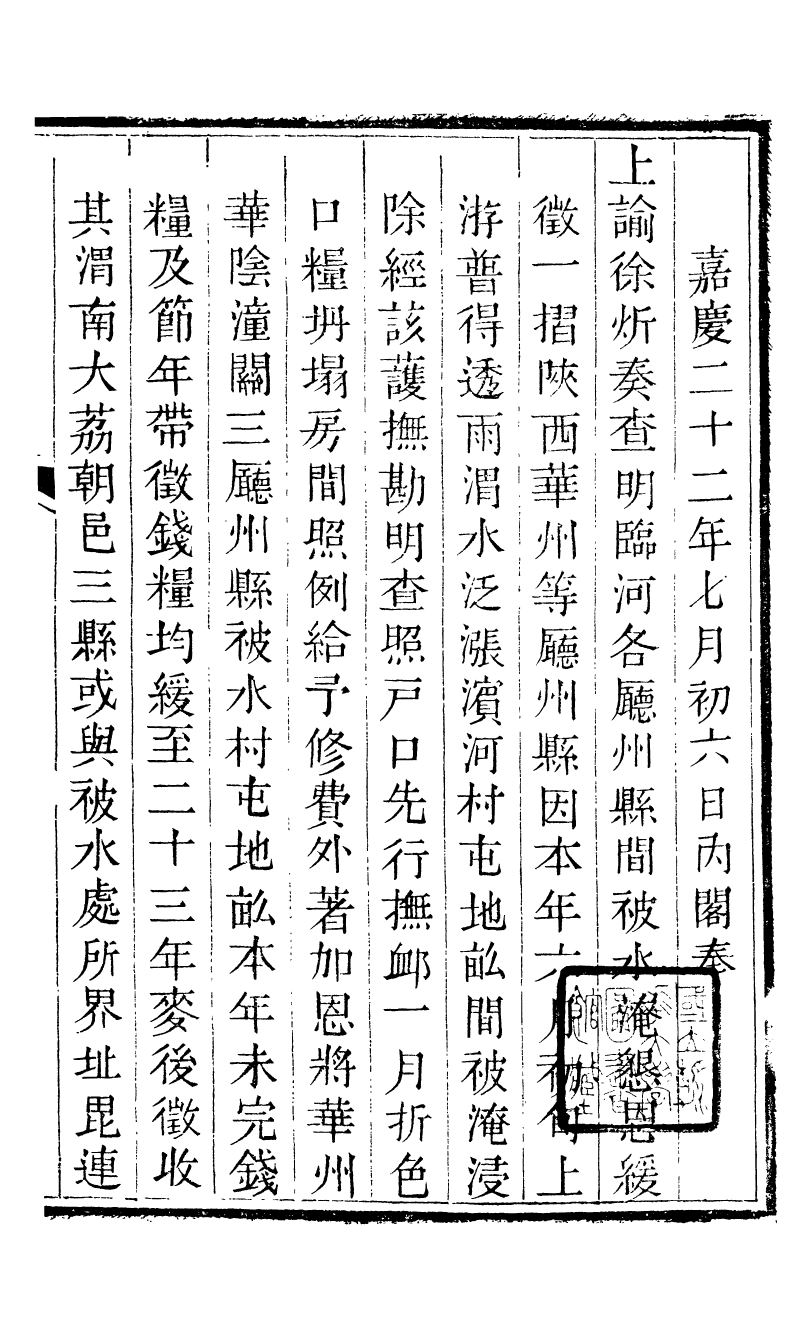 嘉慶二十二年七月初六日內閣奉
上諭徐炘奏查明臨河各廳州縣間被水淹懇恩緩
徵一摺陝西華州等廳州縣因本年六月初旬上
游普得透雨渭水泛漲濱河村屯地畝間被淹浸
除經該護撫勘明查照戶口先行撫卹一月折色
口糧坍塌房間照例給予修費外著加恩將華州
華陰潼關三廳州縣被水村屯地畝本年未完錢
糧及節年帶徵錢糧均緩至二十三年麥後徵收
其渭南大荔朝邑三縣或與被水處所界址毘連